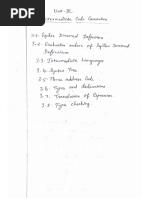 Unit-III
Intermediate Code Generation
3.1. Syntax Directed Definitions
3.2. Evaluation orders of Syntax Directed
Definitions
3.3. Intermediate Languages
3.4. Syntax Tree
3.5. Three address Code
3.6. Types and declarations
3.7. Translation of Expression
3.8. Type checking